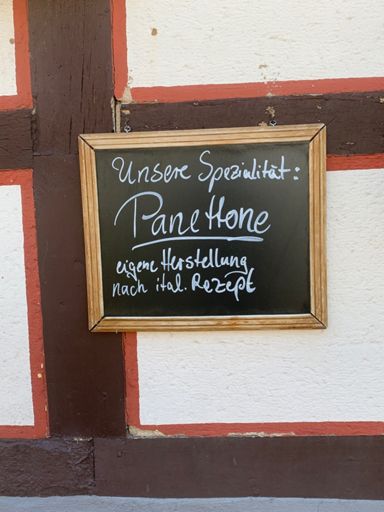 Unsere Spezialität:
Panettone
eigene Herstellung
nach ital. Rezept